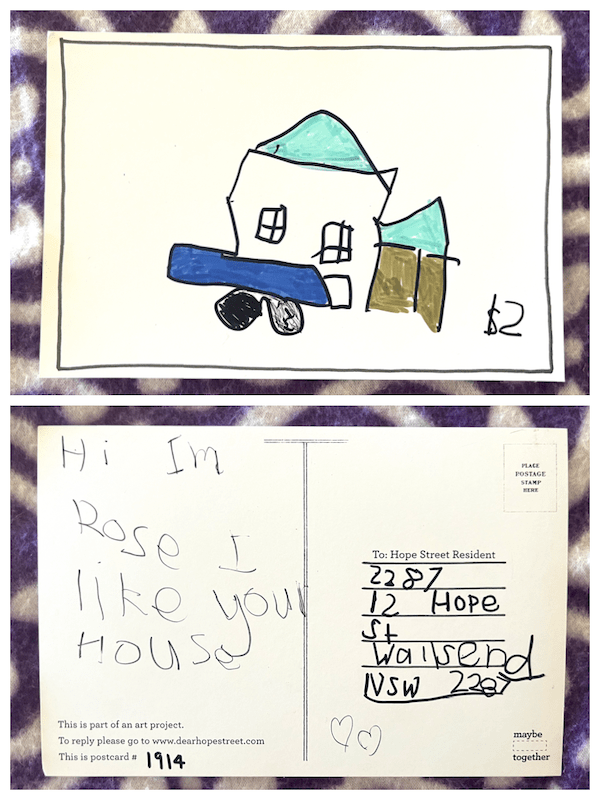 $2
Hi Im
Rose I
like your
House
This is part of an art project.
To reply please go to www.dearhopestreet.com
This is postcard # 1914
PLACE
POSTAGE
STAMP
HERE
To: Hope Street Resident
2287
12 Hope
St
Wallsend
NSW 2287
maybe
together